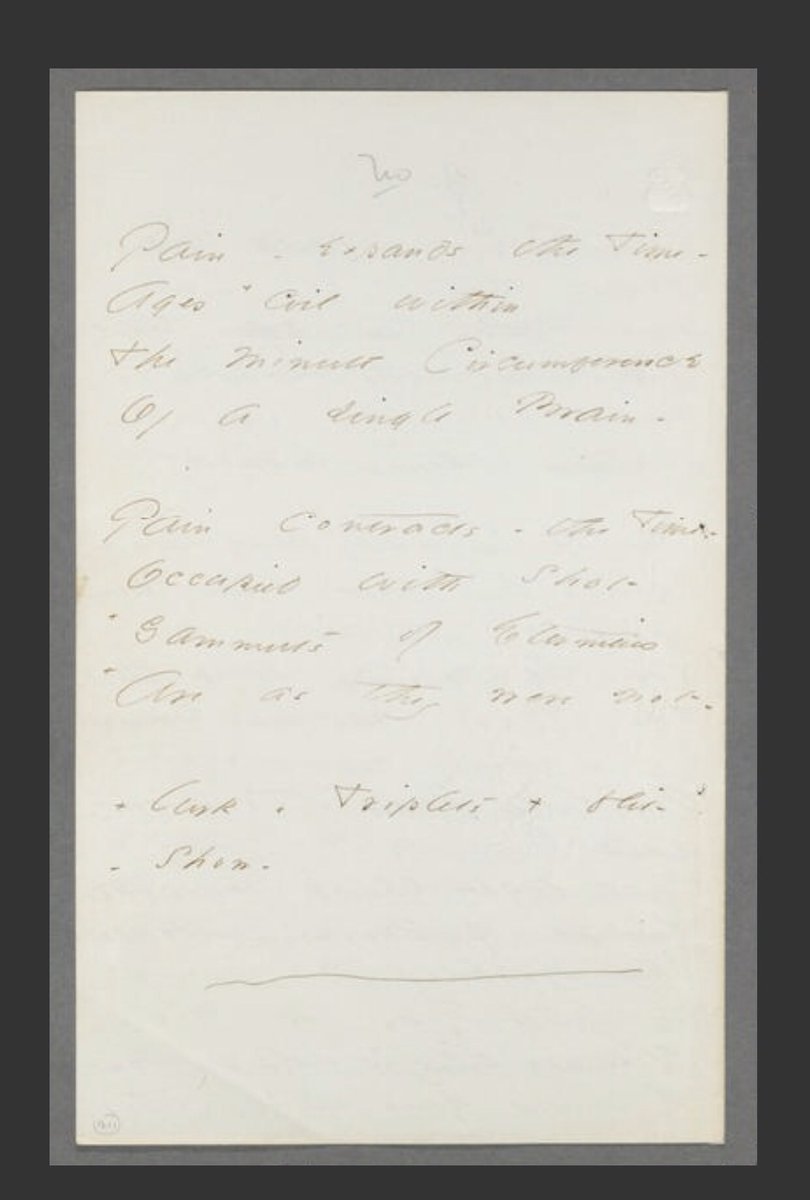 No
Pain - expands the Time -
Ages +coil within
The minute Circumference
Of a single Brain -
Pain contracts - the Time -
Occupied with Shot -
+Gammuts of Eternities
+Are as they were not -
+ lurk + Triplets + flit -
- Show -